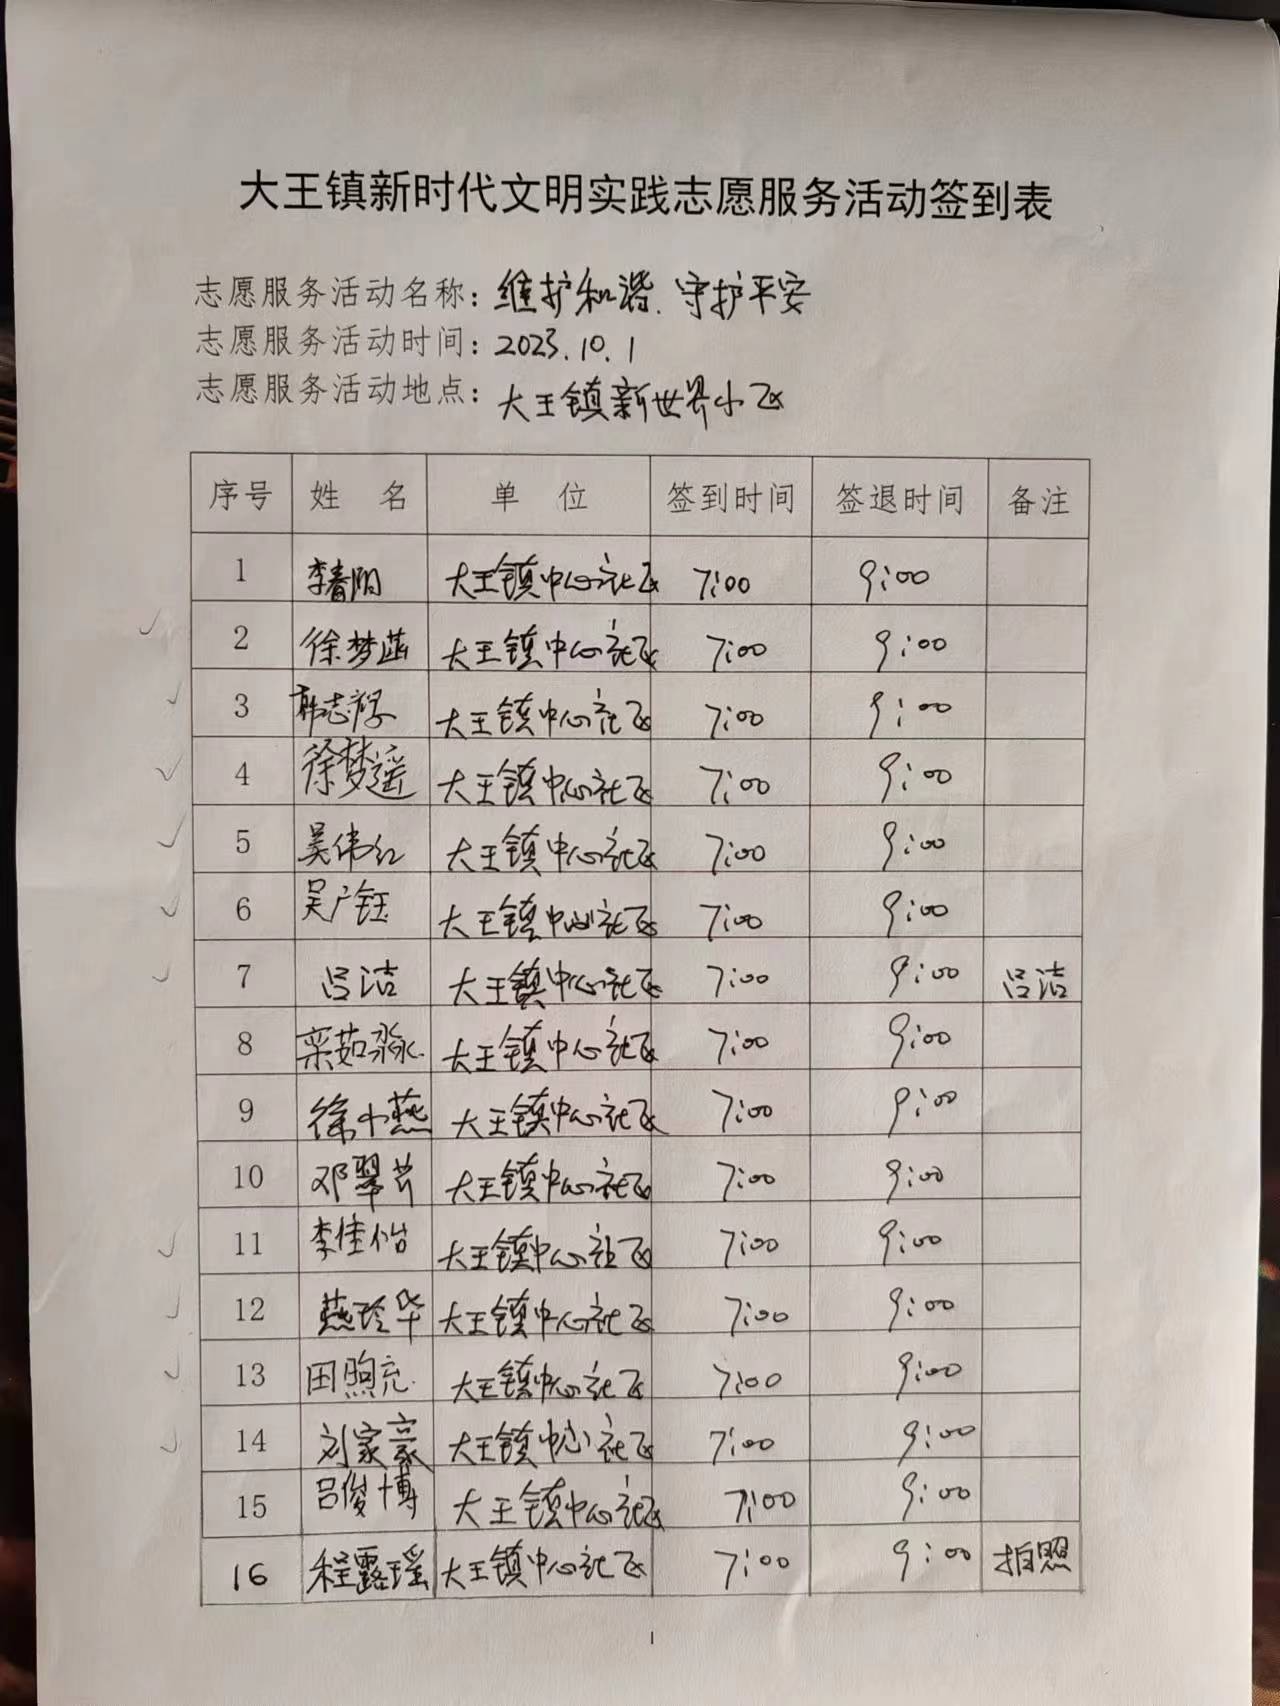 大王镇新时代文明实践志愿服务活动签到表
志愿服务活动名称：维护和谐.守护平安
志愿服务活动时间：2023.10.1
志愿服务活动地点：大王镇新世界小区
序号 姓 名 单 位 签到时间 签退时间 备注
1 李春阳 大王镇中心社区 7:00 9:00
2 徐梦菡 大王镇中心社区 7:00 9:00
3 韩志 大王镇中心社区 7:00 9:00
4 徐梦遥 大王镇中心社区 7:00 9:00
5 吴伟红 大王镇中心社区 7:00 9:00
6 吴广钰 大王镇中心社区 7:00 9:00
7 吕洁 大王镇中心社区 7:00 9:00 吕洁
8 栾茹淼 大王镇中心社区 7:00 9:00
9 徐小燕 大王镇中心社区 7:00 9:00
10 邓翠 大王镇中心社区 7:00 9:00
11 李佳怡 大王镇中心社区 7:00 9:00
12 燕玲华 大王镇中心社区 7:00 9:00
13 田煦充 大王镇中心社区 7:00 9:00
14 刘家豪 大王镇中心社区 7:00 9:00
15 吕俊博 大王镇中心社区 7:00 9:00
16 程露瑶 大王镇中心社区 7:00 9:00 拍照
1